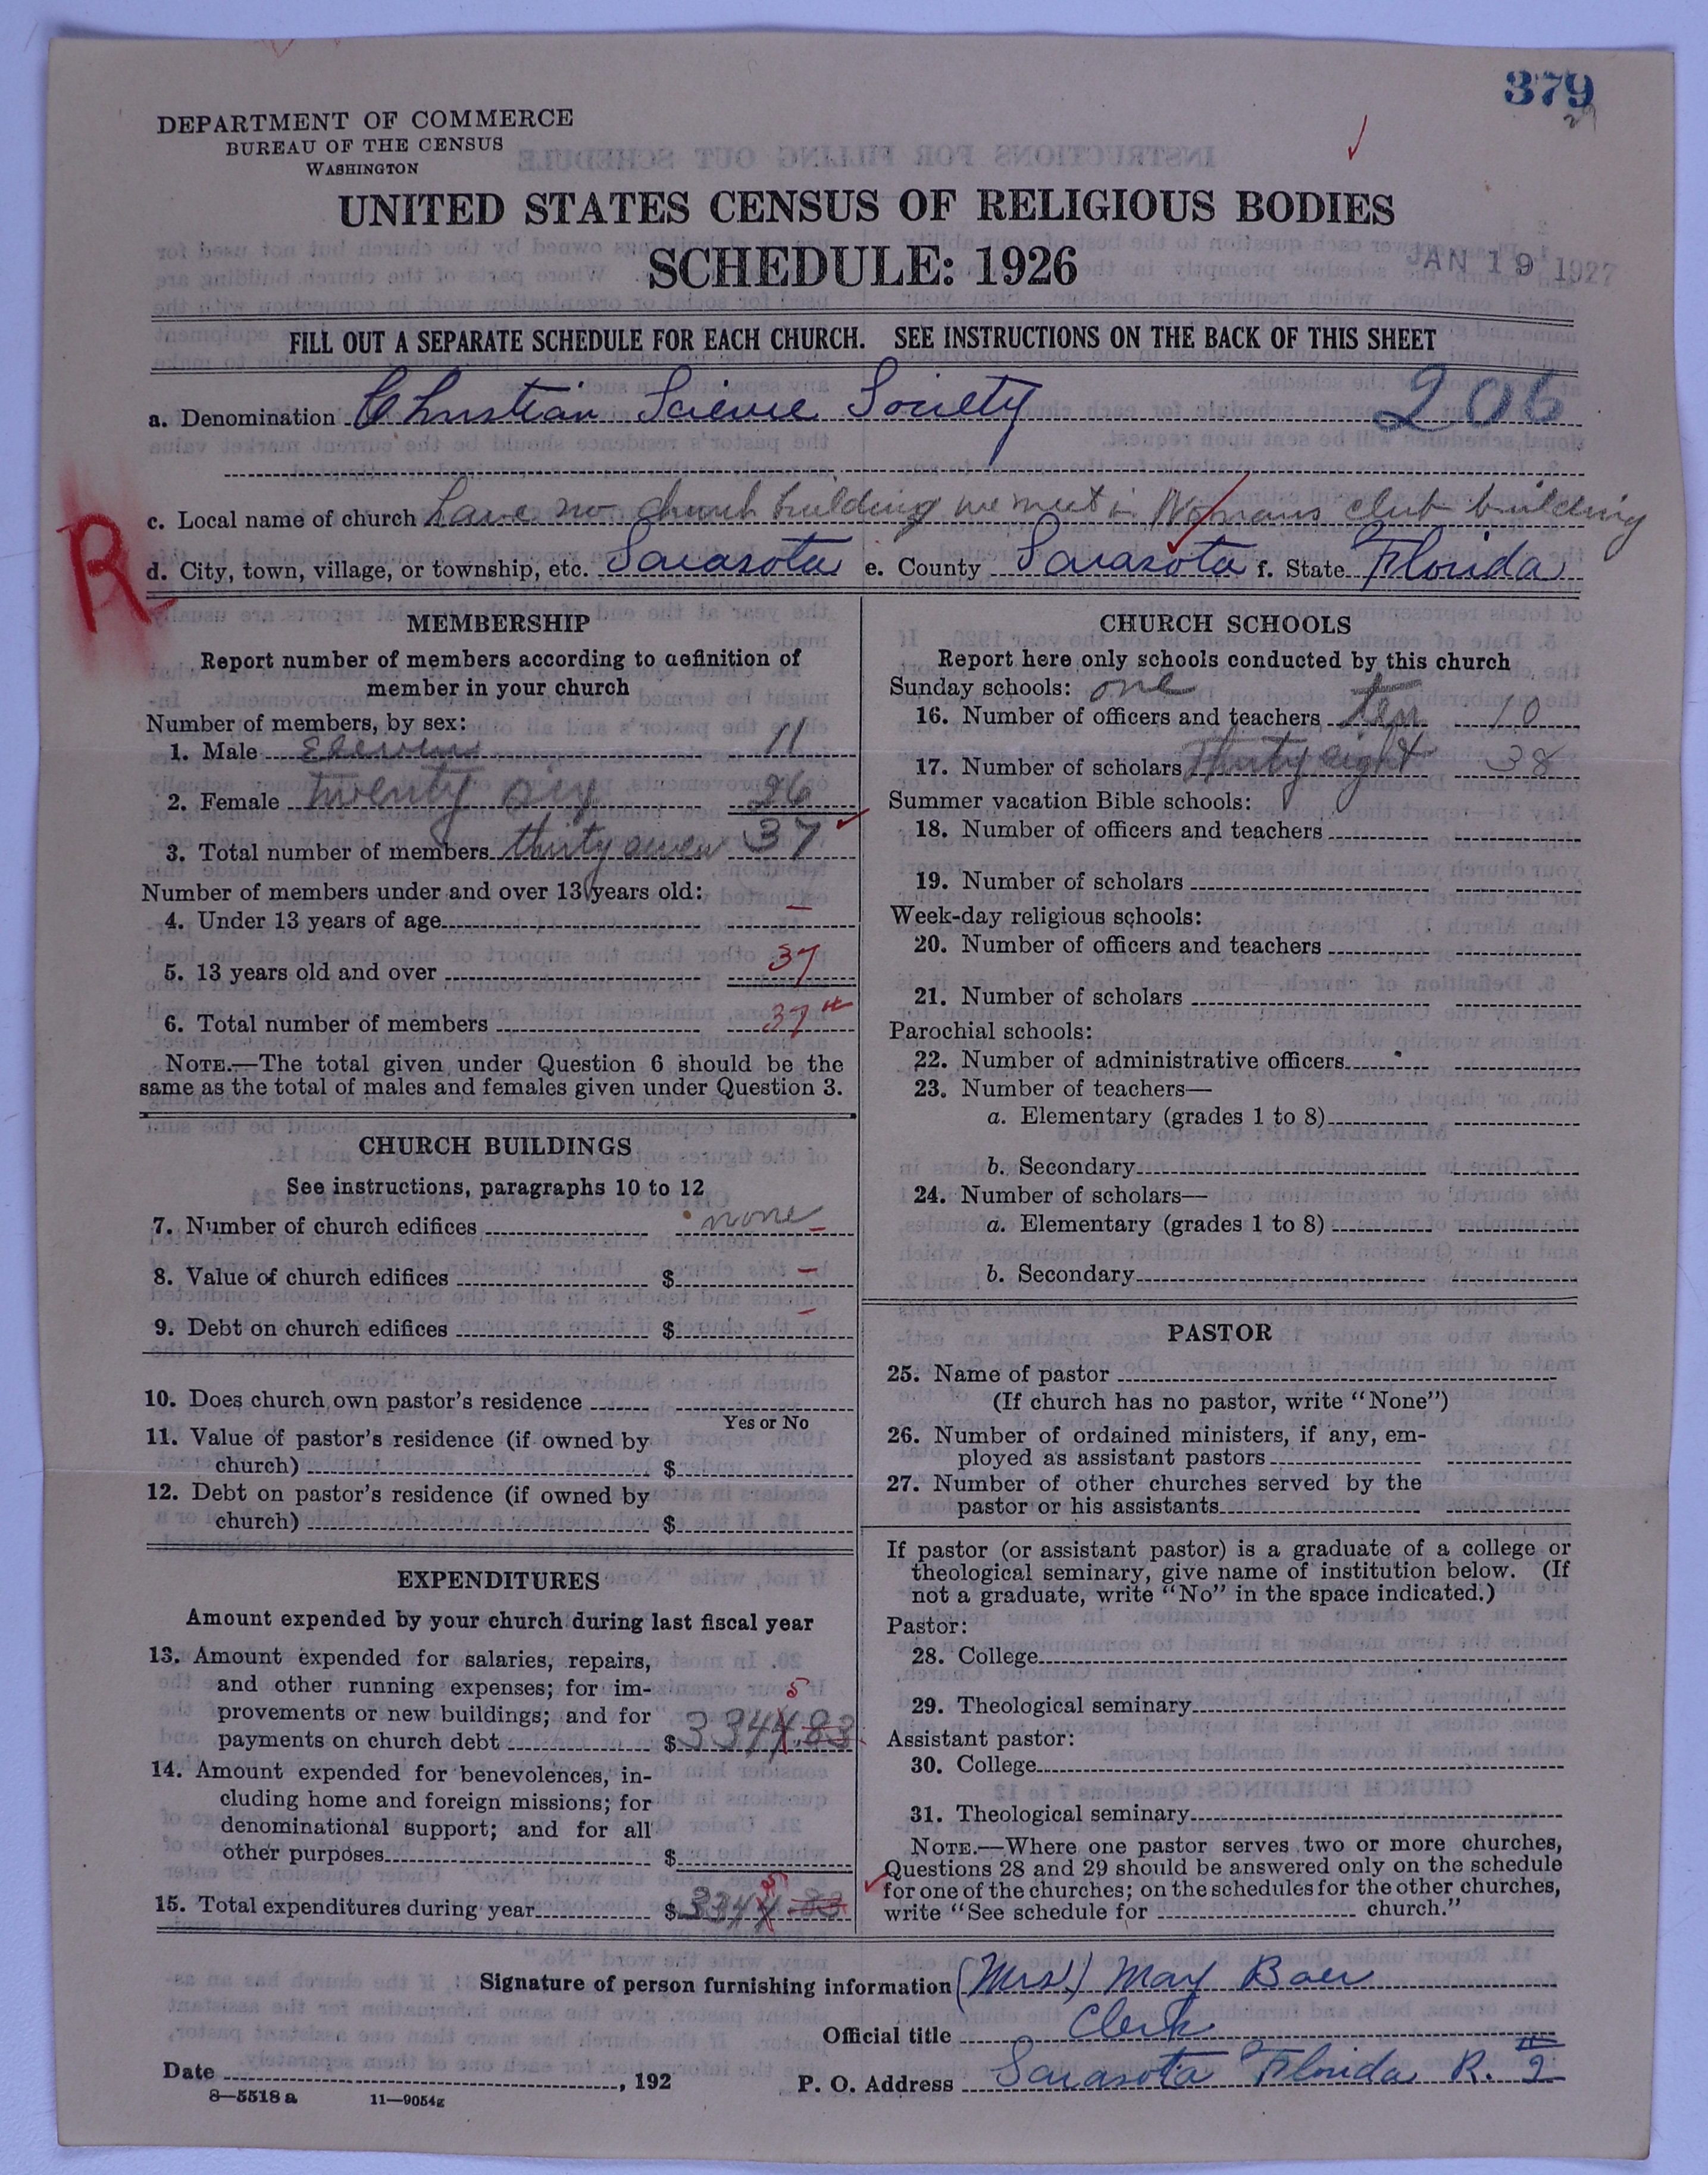 379
29
DEPARTMENT OF COMMERCE
BUREAU OF THE CENSUS
WASHINGTON
UNITED STATES CENSUS OF RELIGIOUS BODIES
SCHEDULE: 1926
JAN 19 1927
FILL OUT A SEPARATE SCHEDULE FOR EACH CHURCH. SEE INSTRUCTIONS ON THE BACK OF THIS SHEET
a. Denomination Christian Science Society 206
c. Local name of church have no church building we meet in Womans club building
R
d. City, town, village, or township, etc. Sarasota e. County Sarasota f. State Florida
MEMBERSHIP
Report number of members according to definition of
member in your church
Number of members, by sex:
1. Male Eleven 11
2. Female Twenty six 26
3. Total number of members thirty seven 37
Number of members under and over 13 years old:
4. Under 13 years of age –
5. 13 years old and over 37
6. Total number of members 37
NOTE.—The total given under Question 6 should be the
same as the total of males and females given under Question 3.
CHURCH BUILDINGS
See instructions, paragraphs 10 to 12
7. Number of church edifices none –
8. Value of church edifices $ –
9. Debt on church edifices $ –
10. Does church own pastor's residence
Yes or No
11. Value of pastor's residence (if owned by
church) $
12. Debt on pastor's residence (if owned by
church) $
EXPENDITURES
Amount expended by your church during last fiscal year
13. Amount expended for salaries, repairs,
and other running expenses; for im-
5
provements or new buildings; and for
payments on church debt $ 3344.83
14. Amount expended for benevolences, in-
cluding home and foreign missions; for
denominational support; and for all
other purposes $
5
15. Total expenditures during year $ 3344.83
CHURCH SCHOOLS
Report here only schools conducted by this church
Sunday schools: one
16. Number of officers and teachers ten 10
17. Number of scholars Thirty eight 38
Summer vacation Bible schools:
18. Number of officers and teachers
19. Number of scholars
Week-day religious schools:
20. Number of officers and teachers
21. Number of scholars
Parochial schools:
22. Number of administrative officers
23. Number of teachers—
a. Elementary (grades 1 to 8)
b. Secondary
24. Number of scholars—
a. Elementary (grades 1 to 8)
b. Secondary
PASTOR
25. Name of pastor
(If church has no pastor, write "None")
26. Number of ordained ministers, if any, em-
ployed as assistant pastors
27. Number of other churches served by the
pastor or his assistants
If pastor (or assistant pastor) is a graduate of a college or
theological seminary, give name of institution below. (If
not a graduate, write "No" in the space indicated.)
Pastor:
28. College
29. Theological seminary
Assistant pastor:
30. College
31. Theological seminary
NOTE.—Where one pastor serves two or more churches,
Questions 28 and 29 should be answered only on the schedule
for one of the churches; on the schedules for the other churches,
write "See schedule for church."
Signature of person furnishing information (Mrs.) May Baer
Official title Clerk
Date , 192
P. O. Address Sarasota Florida R. #2
8—5518 a 11—9054g